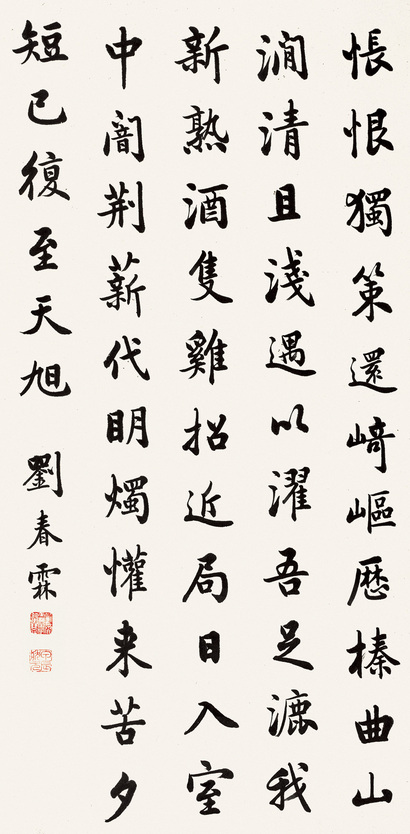 悵恨獨策還崎嶇歷榛曲山
澗清且淺遇以濯吾足漉我
新熟酒隻雞招近局日入室
中闇荆薪代明燭懽来苦夕
短已復至天旭
劉春霖